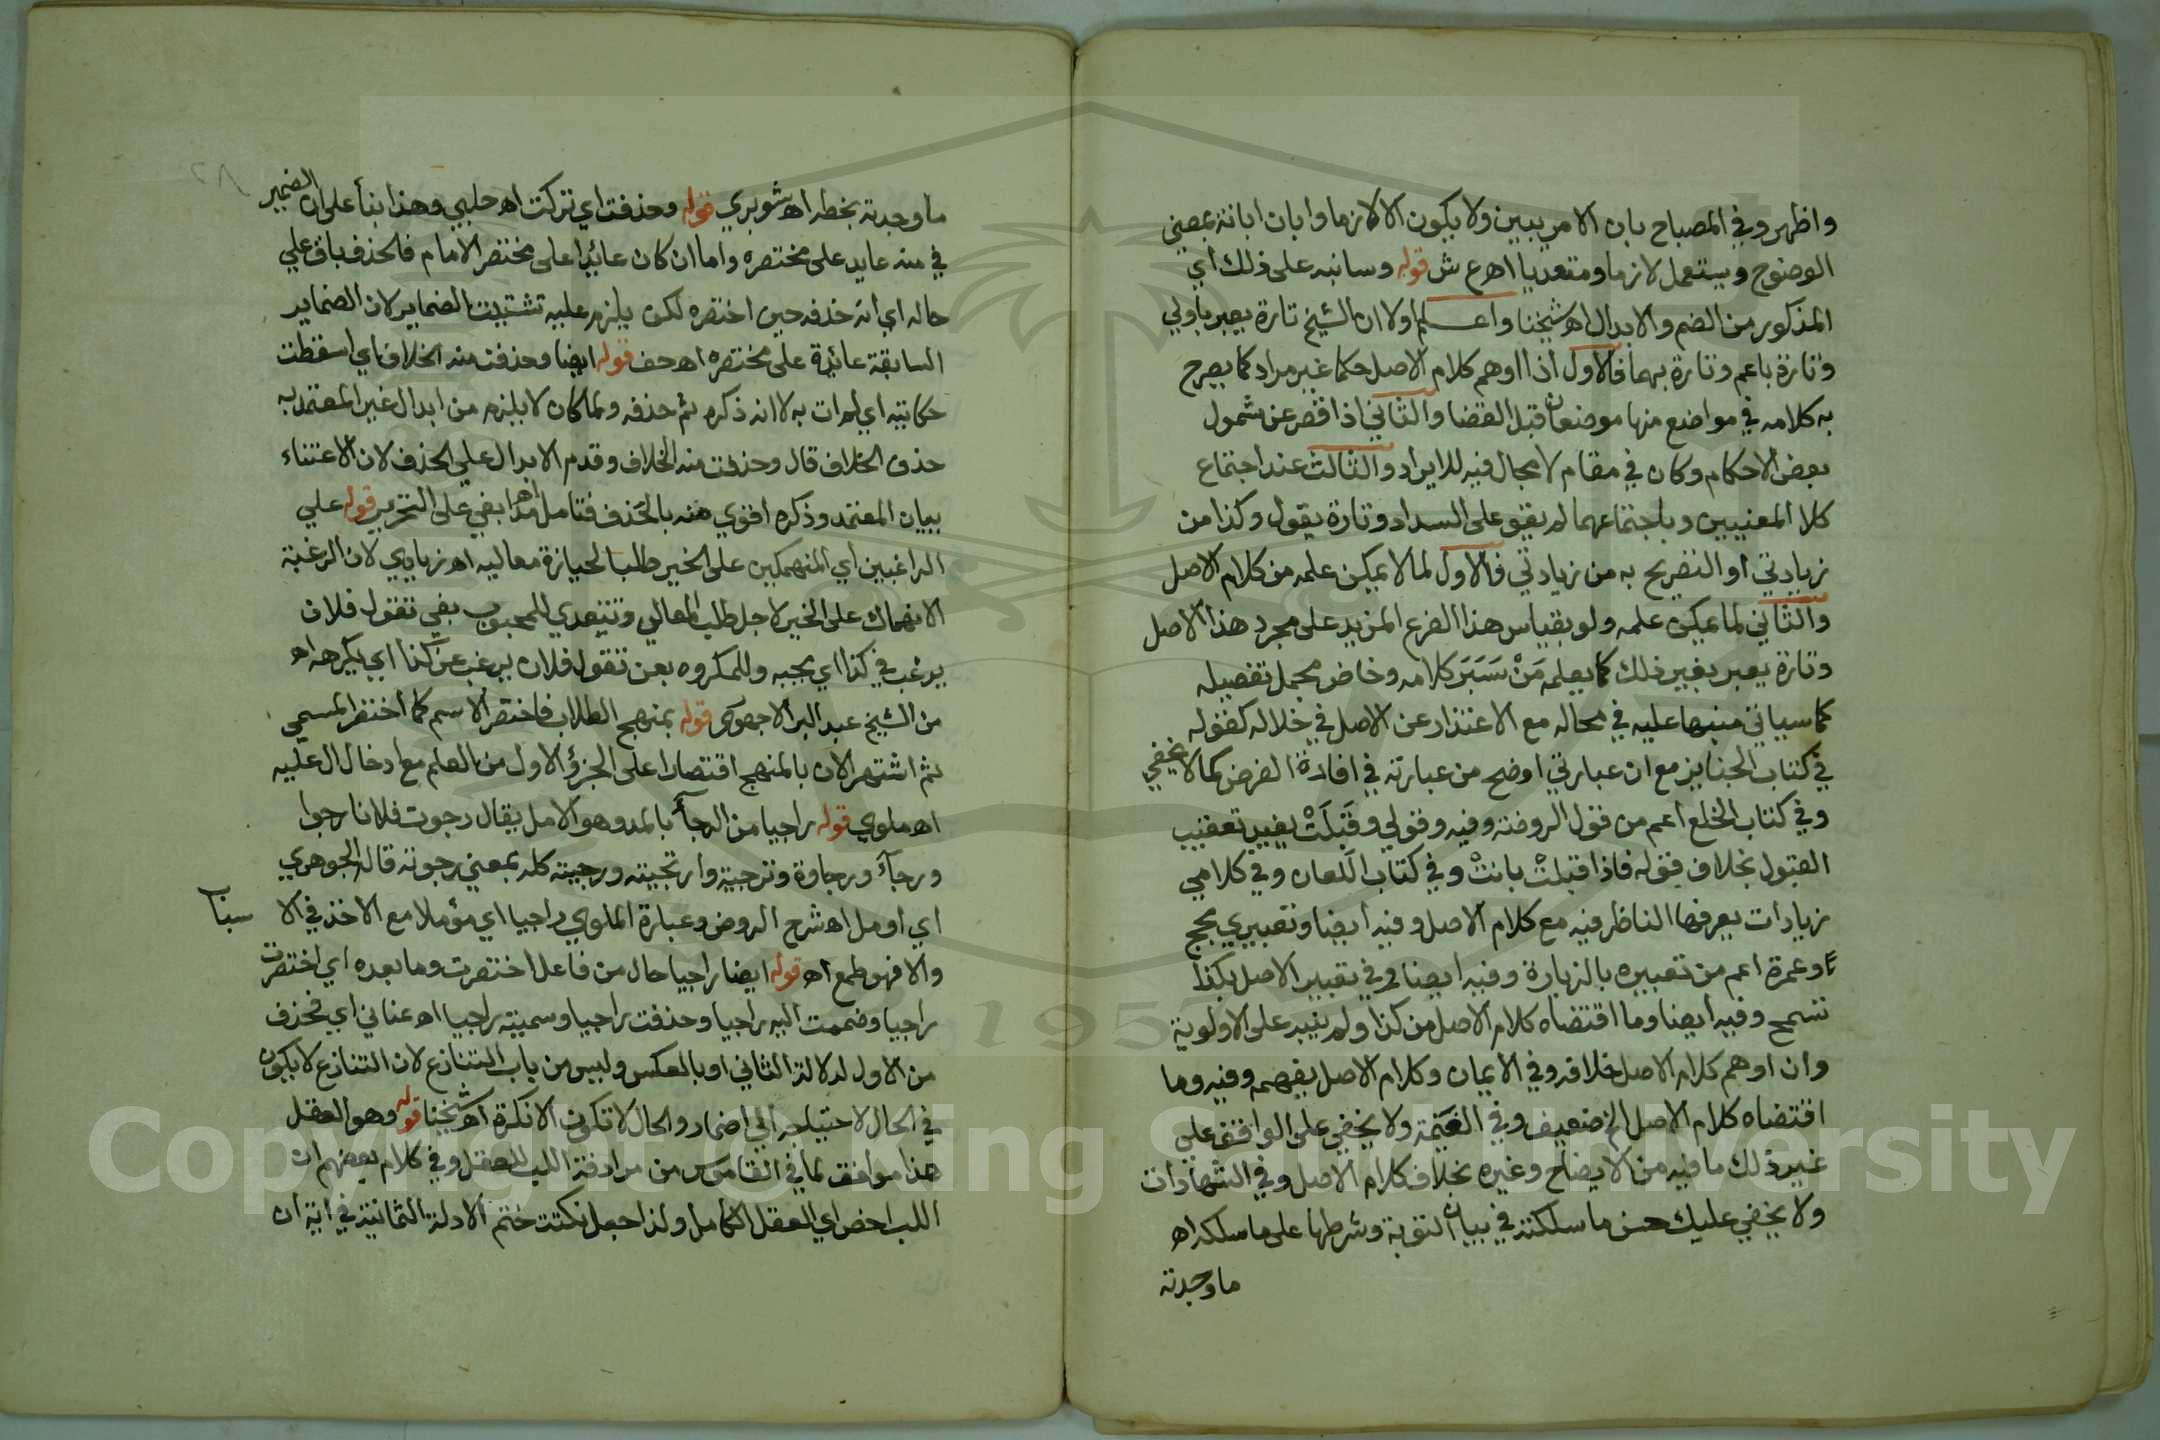 واظهر وفي المصباح بان الامر يبين ولا يكون الا لازما وابان ابانة بمعني
الوضوح ويستعمل لازما ومتعديا اهع ش قوله وسانبه على ذلك اي
المذكور من الضم والابدال اه شيخنا واعلم اولا ان الشيخ تارة يعبر باولي
وتارة باعم وتارة بهما فالاول اذا اوهم كلام الاصل حكما غير مراد كما يصرح
به كلامه في مواضع منها موضعان قبل القضا والثاني اذا قصر عن شمول
بعض الاحكام وكان في مقام لا مجال فيه للايراد والثالث عند اجتماع
كلا المعنيين وباجتماعهما لم يبق على السداد وتارة يقول وكذا من
زيادتي او التصريح به من زيادتي فالاول لما لا يمكن علمه من كلام الاصل
والثاني لما يمكن علمه ولو بقياس هذا الفرع المزيد على مجرد هذا الاصل
وتارة يعبر بغير ذلك كما يعلمه مَنْ سَبَرَ كلامه وخاض مجمل تفصيله
كما سياتي منبها عليه في محاله مع الاعتذار عن الاصل في خلاله كقوله
في كتاب الجنايز مع ان عبارتي اوضح من عبارته في افادة الغرض كما لا يخفي
وفي كتاب الخلع اعم من قول الروضة وفيه وقولي وقَبِلَتْ يفيد تعقيب
القبول بخلاف قوله فاذا قبلتْ بانتْ وفي كتاب اللعان وفي كلامي
زيادات يعرفها الناظر فيه مع كلام الاصل وفيه ايضا وتعبيري بحج
وعمرة اعم من تعبيره بالزيارة وفيه ايضا وفي تعبير الاصل بكذا
تسمح وفيه ايضا وما اقتضاه كلام الاصل من كذا ولم ينبه على الاولوية
وان اوهم كلام الاصل خلافه وفي الايمان وكلام الاصل يفهمه وفيه وما
اقتضاه كلام الاصل الخ ضعيف وفي الغنيمة ولا يخفي على الواقف علي
غير ذلك ما فيه من الايضاح وغيره بخلاف كلام الاصل وفي الشهادات
ولا يخفي عليك حسن ما سلكته في بيان التوبة وشرطها على ما سلكه اه
ما وجدته
ما وجدته بخطه اه شوبري قوله وحذفت اي تركت اه حلبي وهذا بنا على ان الضمير
في منه عايد على مختصره واما ان كان عائدا على مختصر الامام فالحذف باق علي
حاله اي انه حذفه حين اختصره لكن يلزم عليه تشتيت الضماير لان الضماير
السابقة عائدة على مختصره اه حف قوله ايضا وحذفت منه الخلاف اي اسقطت
حكايته اي لم ات به لا انه ذكره ثم حذفه ولما كان لا يلزم من ابدال غير المعتمد به
حذف الخلاف قال وحذفت منه الخلاف وقدم الابدال علي الحذف لان الاعتناء
ببيان المعتمد وذكره اقوي منه بالحذف فتامل اه مدابغي على التحرير قوله علي
الراغبين اي المنهمكين على الخير طلبا لحيازة معاليه اه زيادي لان الرغبة
الانهماك على الخير لاجل طلب المعالي وتتعدي للمحبوب بفي تقول فلان
يرغب في كذا اي يحبه وللمكروه بعن تقول فلان يرغب عن كذا اي يكرهه اه
من الشيخ عبد البر الاجهوري قوله بمنهج الطلاب فاختصر الاسم كما اختصر المسمي
ثم اشتهر الان بالمنهج اقتصارا على الجزؤ الاول من العلم مع ادخال ال عليه
اه ملوي قوله راجيا من الرجآ بالمد وهو الامل يقال رجوت فلانا رجوا
ورجآء ورجاوة وترجيته وارتجيته ورجيته كله بمعني رجوته قاله الجوهري
اي اومل اه شرح الروض وعبارة الملوي راجيا اي مؤملا مع الاخذ في الا سباب
والا فهو طمع اه قوله ايضا راجيا حال من فاعل اختصرت وما بعده اي اختصرت
راجيا وضممت اليه راجيا وحذفت راجيا وسميته راجيا اه عناني اي فحذف
من الاول لدلالة الثاني او بالعكس وليس من باب التنازع لان التنازع لا يكون
في الحال لاحتياجه الي اضمار والحال لا تكون الا نكرة اه شيخنا قوله وهو العقل
هذا موافق لما في القاموس من مرادفة اللب للعقل وفي كلام بعضهم ان
اللب اخص اي العقل الكامل ولذا جعل نكتت ختم الادلة الثمانية في اية ان
Copyright © King Saud University
1957